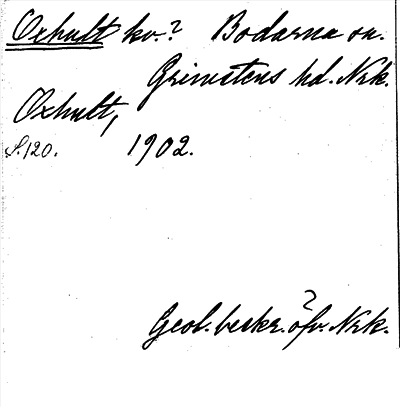 Oxhult kv.? Bodarna sn.
Grimstens hd. Nrk.
Oxhult,
S.120. 1902.
Geol. beskr. öfv. Nrk.